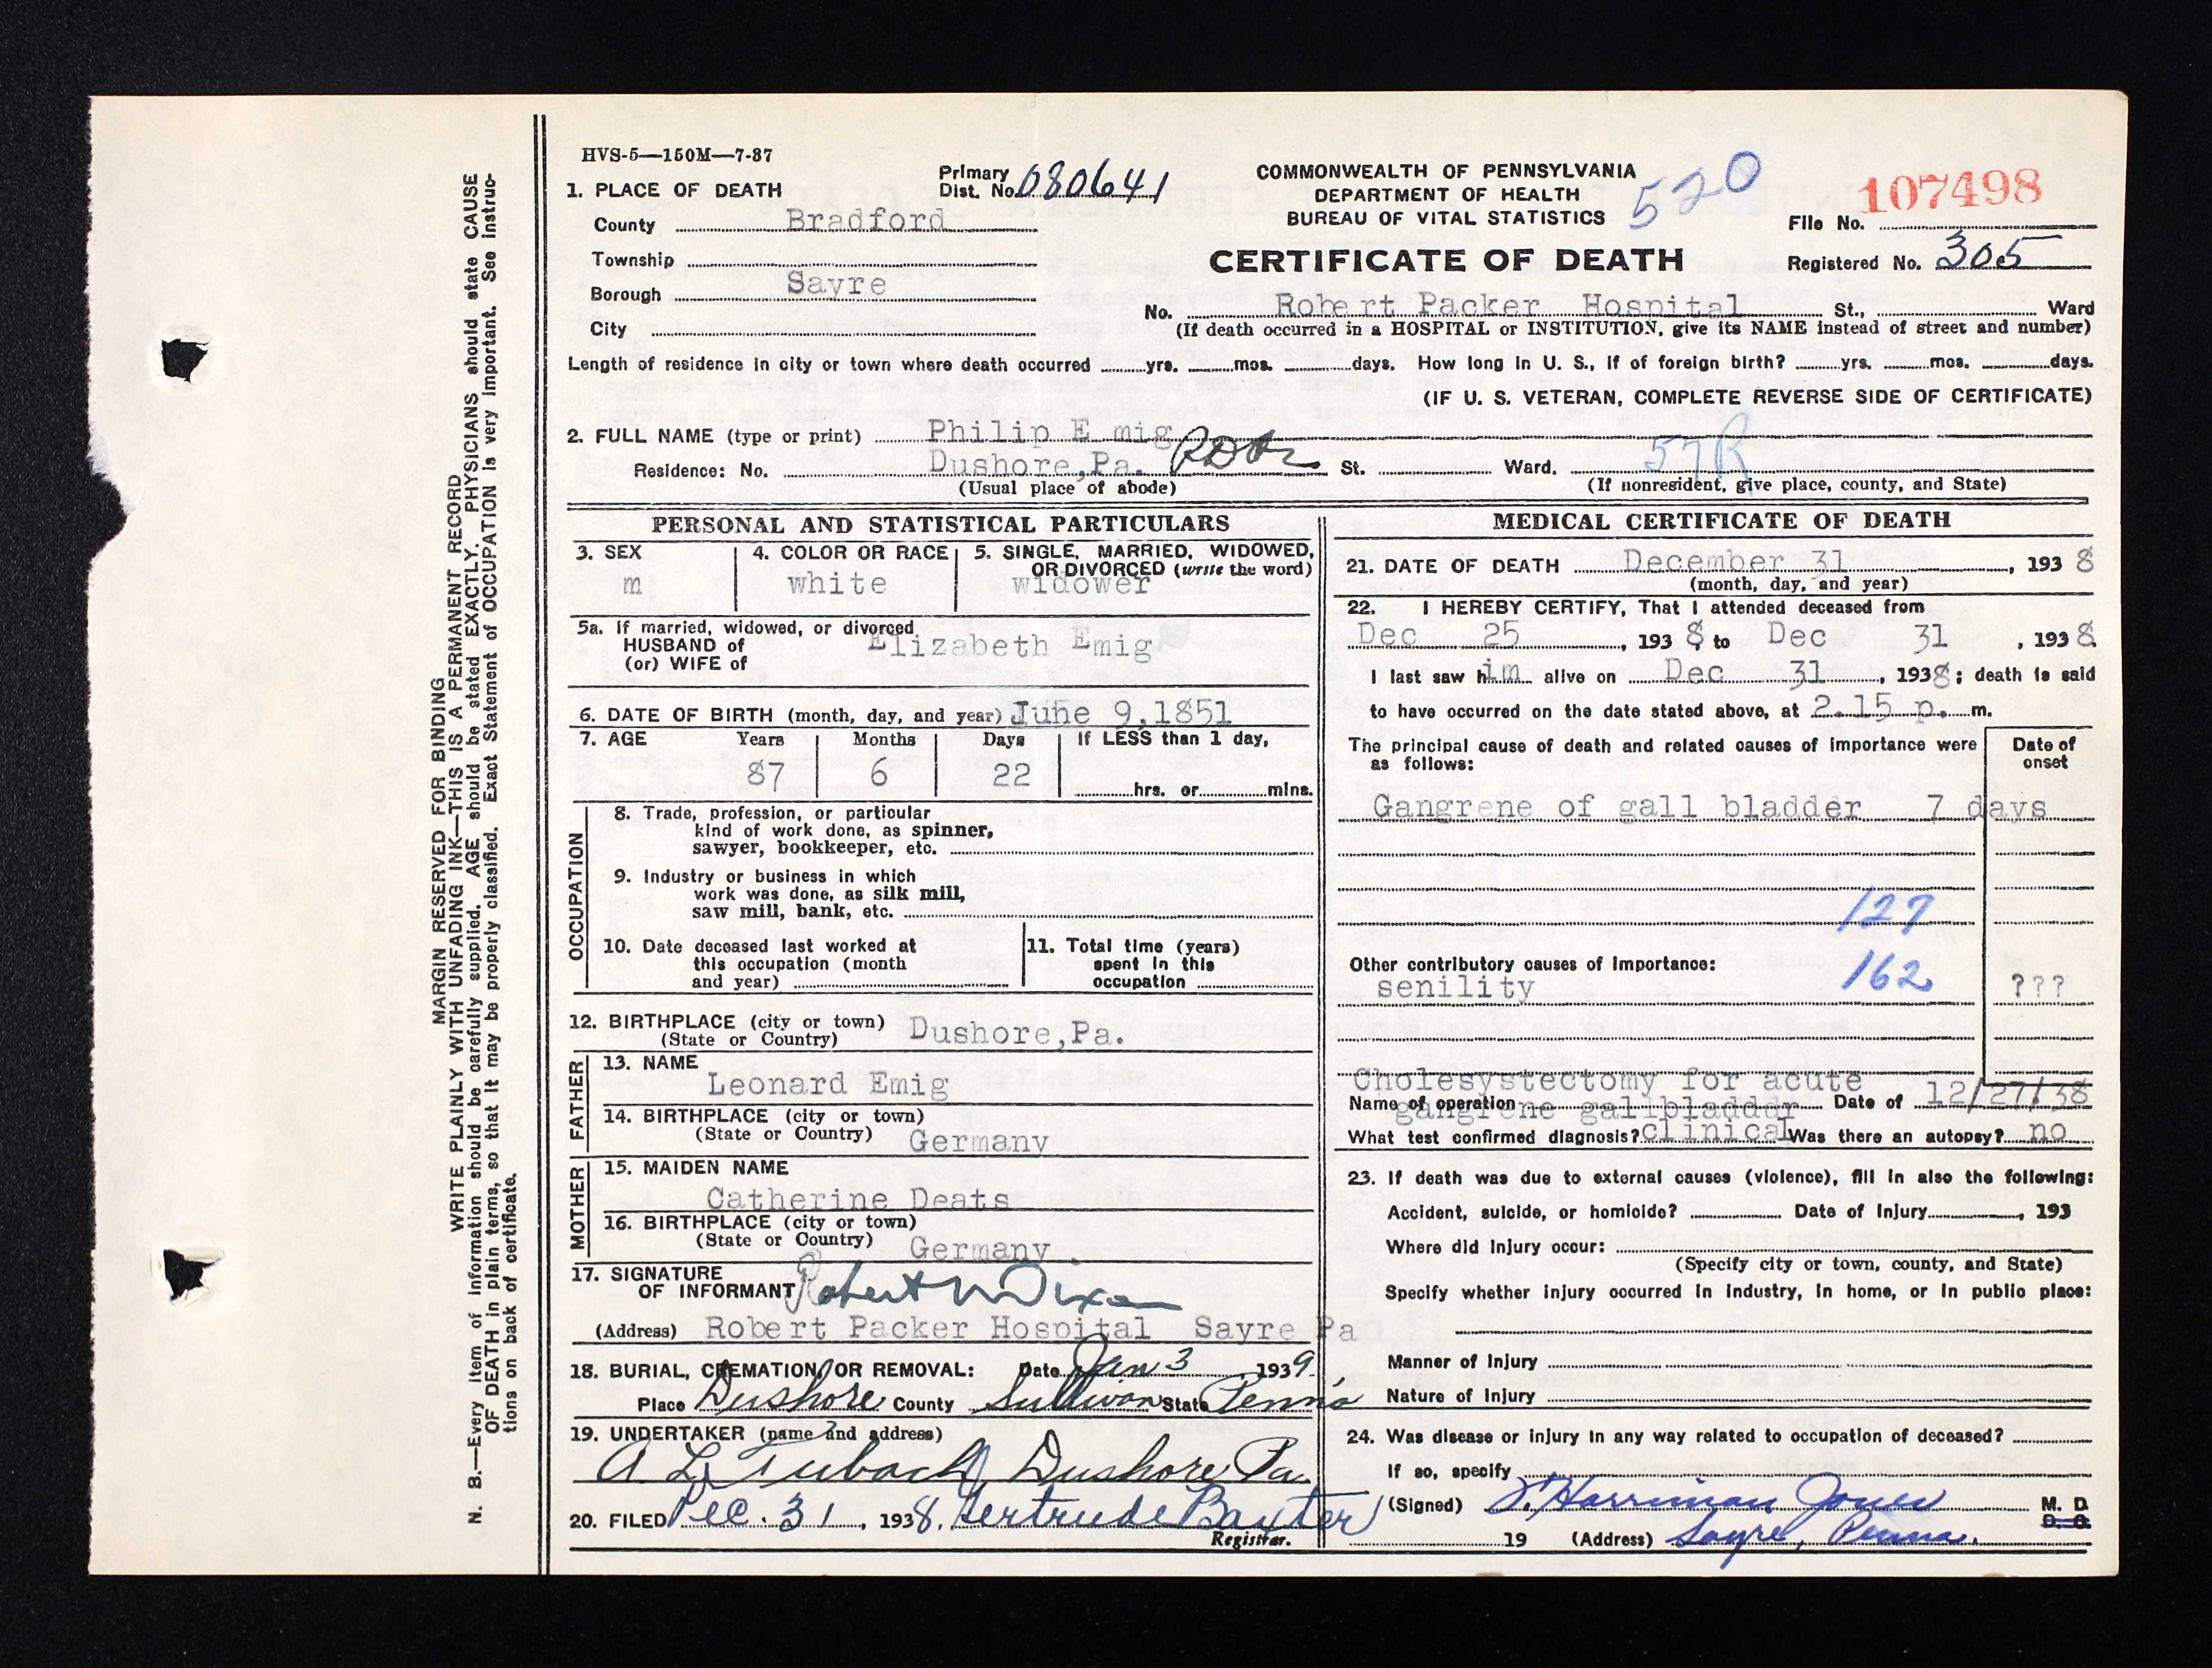 HVS-5—150M—7-37
1. PLACE OF DEATH
Primary
Dist. No. 080641
County Bradford
Township
Borough Sayre
City
COMMONWEALTH OF PENNSYLVANIA
DEPARTMENT OF HEALTH
BUREAU OF VITAL STATISTICS
520
CERTIFICATE OF DEATH
107498
File No.
Registered No. 305
No. Robert Packer Hospital St., Ward
(If death occurred in a HOSPITAL or INSTITUTION, give its NAME instead of street and number)
Length of residence in city or town where death occurred yrs. mos. days. How long in U. S., if of foreign birth? yrs. mos. days.
(IF U. S. VETERAN, COMPLETE REVERSE SIDE OF CERTIFICATE)
2. FULL NAME (type or print) Philip E mig
Residence: No. Dushore,Pa. St. Ward. 57R
(Usual place of abode) (If nonresident, give place, county, and State)
PERSONAL AND STATISTICAL PARTICULARS
3. SEX
m
4. COLOR OR RACE
white
5. SINGLE, MARRIED, WIDOWED,
OR DIVORCED (write the word)
widower
5a. If married, widowed, or divorced
HUSBAND of Elizabeth Emig
(or) WIFE of
6. DATE OF BIRTH (month, day, and year) June 9,1851
7. AGE Years Months Days If LESS than 1 day,
87 6 22 hrs. or mins.
OCCUPATION
8. Trade, profession, or particular
kind of work done, as spinner,
sawyer, bookkeeper, etc.
9. Industry or business in which
work was done, as silk mill,
saw mill, bank, etc.
10. Date deceased last worked at
this occupation (month
and year)
11. Total time (years)
spent in this
occupation
12. BIRTHPLACE (city or town) Dushore,Pa.
(State or Country)
FATHER
13. NAME
Leonard Emig
14. BIRTHPLACE (city or town)
(State or Country) Germany
MOTHER
15. MAIDEN NAME
Catherine Deats
16. BIRTHPLACE (city or town)
(State or Country) Germany.
17. SIGNATURE
OF INFORMANT Robert W Dixon
(Address) Robert Packer Hospital Sayre Pa
18. BURIAL, CREMATION, OR REMOVAL: Date Jan 3 1939.
Place Dushore County Sullivan State Penn'a
19. UNDERTAKER (name and address)
A L Tubach, Dushore Pa.
20. FILED Dec. 31, 1938. Gertrude Baxter
Registrar.
MEDICAL CERTIFICATE OF DEATH
21. DATE OF DEATH December 31, 1938
(month, day, and year)
22. I HEREBY CERTIFY, That I attended deceased from
Dec 25, 1938 to Dec 31, 1938
I last saw him alive on Dec 31, 1938; death is said
to have occurred on the date stated above, at 2.15 p. m.
The principal cause of death and related causes of importance were
as follows:
Date of
onset
Gangrene of gall bladder 7 days
127
Other contributory causes of importance:
162
senility ???
Cholesystectomy for acute
Name of operation gangrene gallbladder Date of 12/27/38
What test confirmed diagnosis? clinical Was there an autopsy? no
23. If death was due to external causes (violence), fill in also the following:
Accident, suicide, or homicide? Date of Injury, 193
Where did injury occur:
(Specify city or town, county, and State)
Specify whether injury occurred in industry, in home, or in public place:
Manner of Injury
Nature of Injury
24. Was disease or injury in any way related to occupation of deceased?
If so, specify
(Signed) Harriman Jones M. D.
D. O.
19 (Address) Sayre, Penna.
MARGIN RESERVED FOR BINDING
WRITE PLAINLY WITH UNFADING INK—THIS IS A PERMANENT RECORD
N. B.—Every item of information should be carefully supplied. AGE should be stated EXACTLY. PHYSICIANS should state CAUSE
OF DEATH in plain terms, so that it may be properly classified. Exact Statement of OCCUPATION is very important. See instruc-
tions on back of certificate.